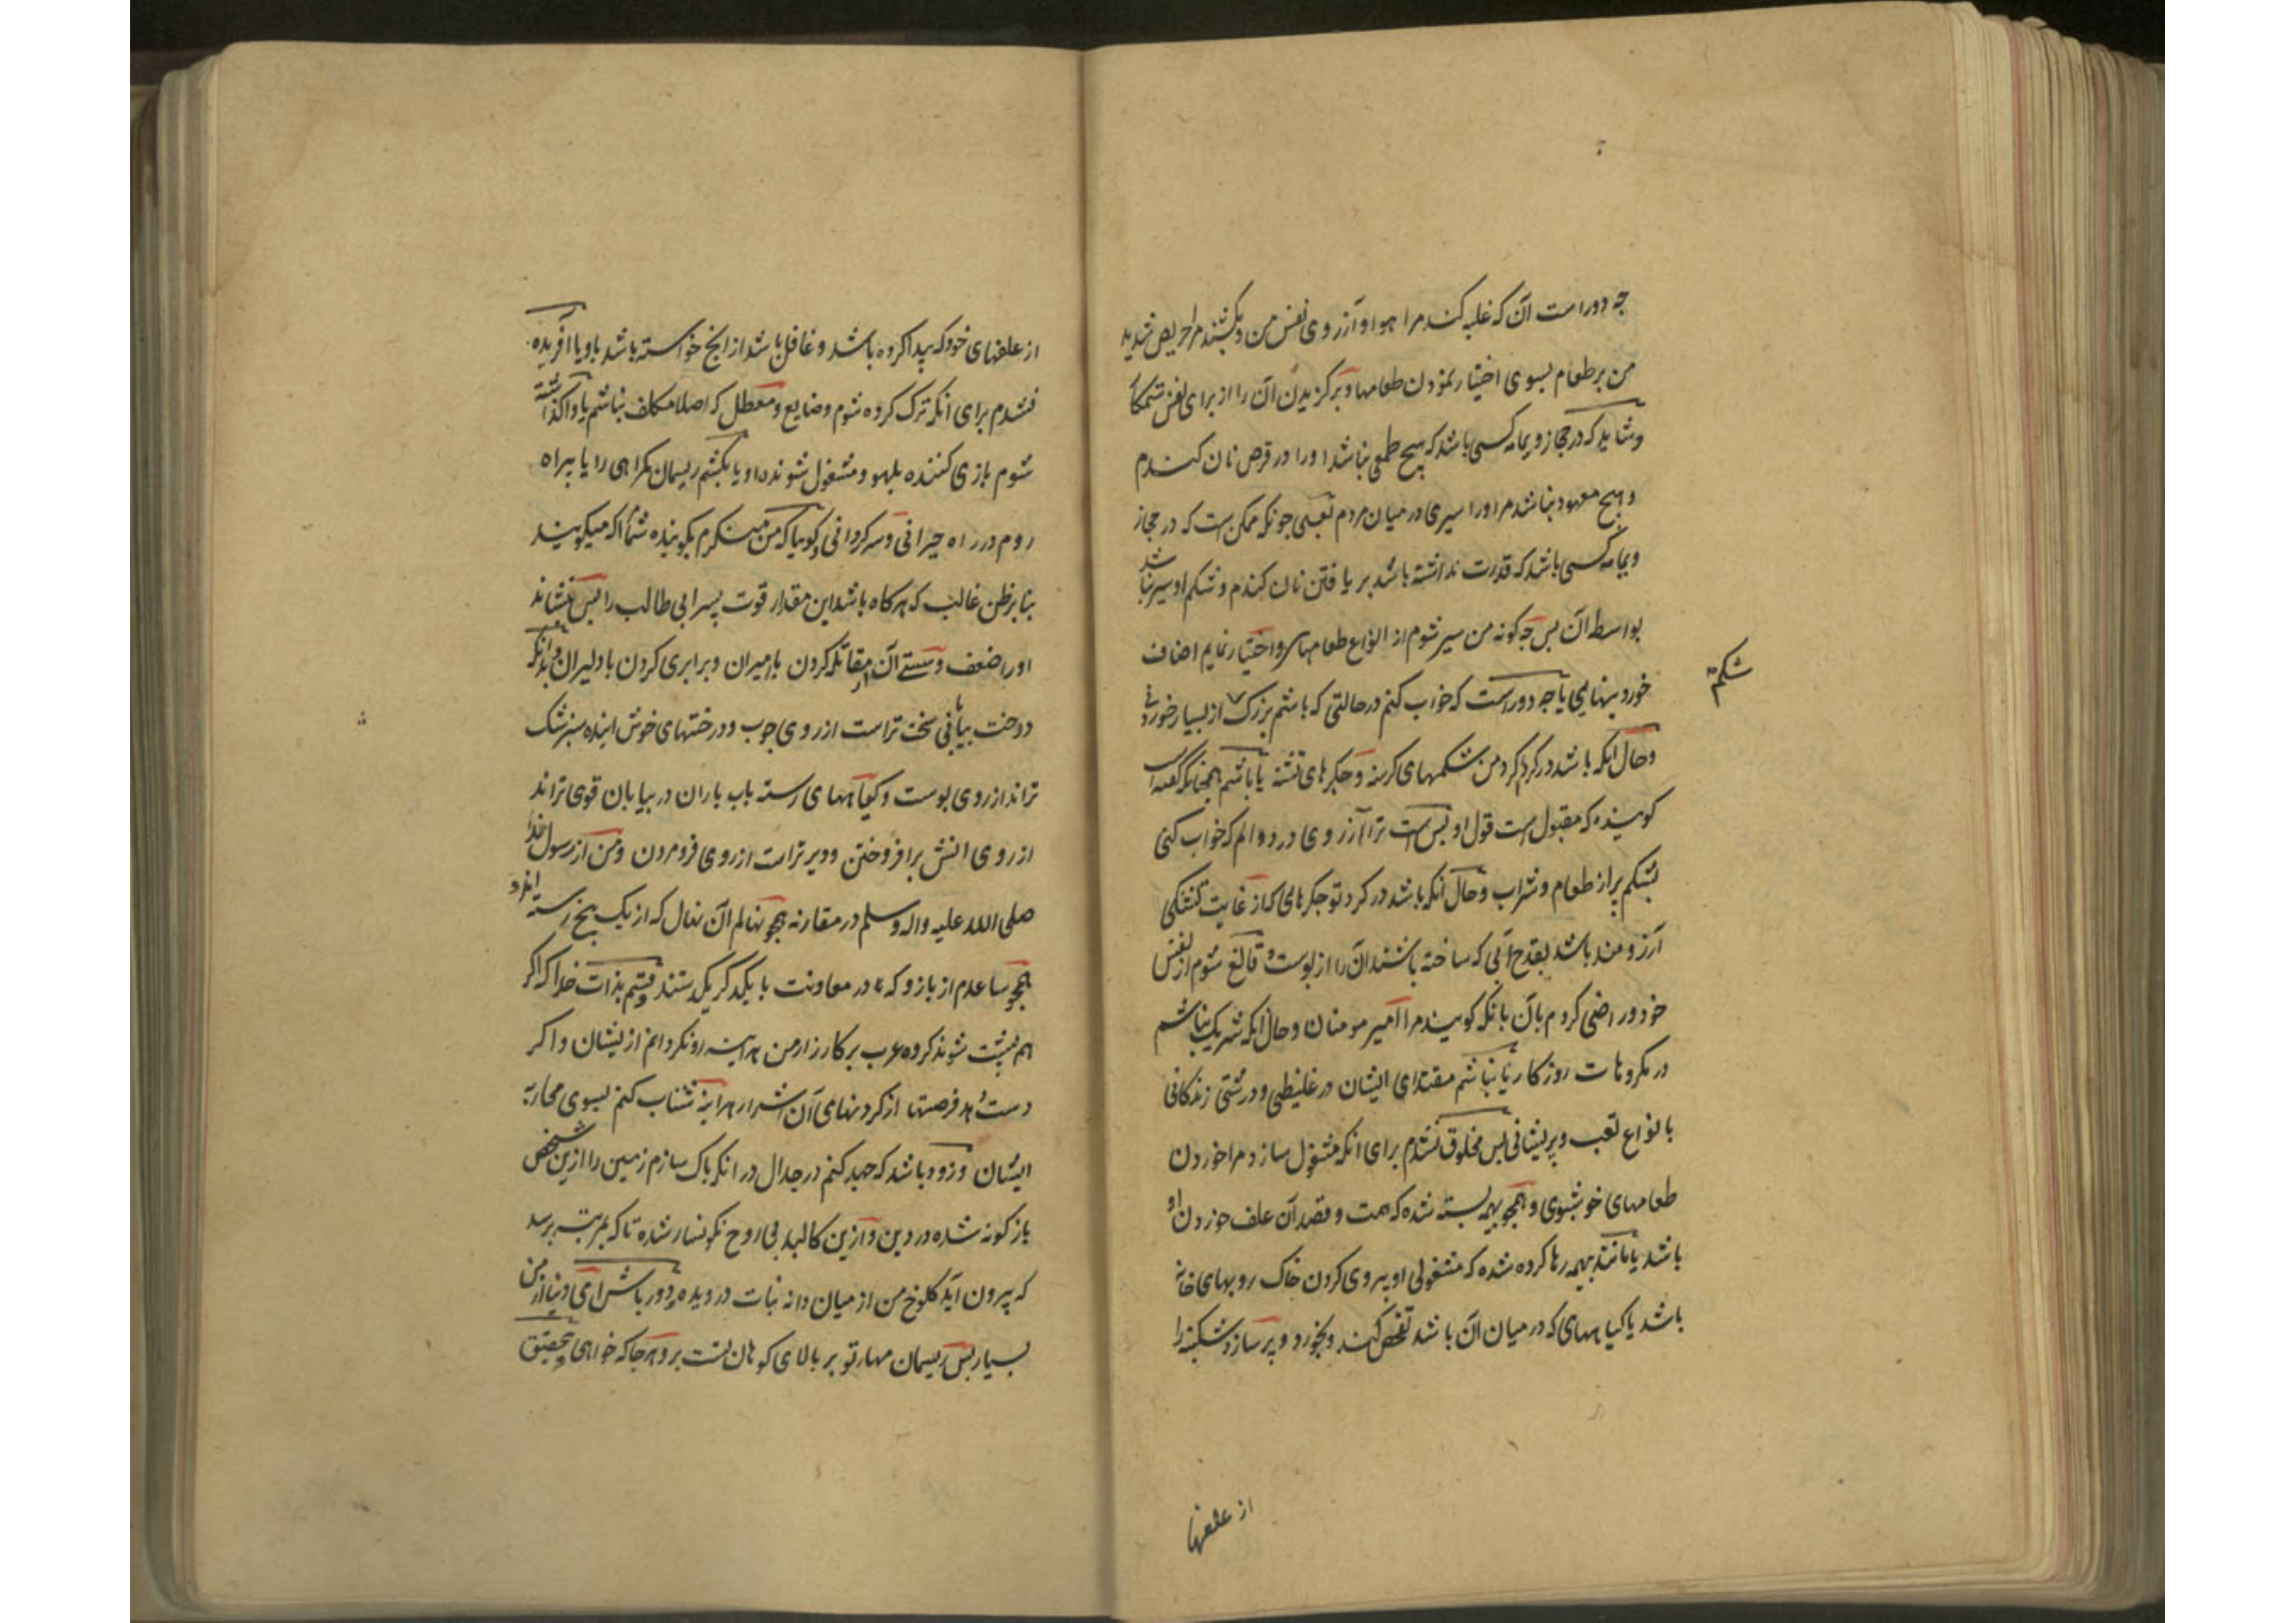 چه دوراست آن که غلبه کند مرا هوا و آرزوی نفس من و بکشند مرا حریص شدید
من بر طعام بسوی اختیار نمودن طعامها و برگزیدن آن را از برای نفس
و شاید که در حجاز و یمامه کسی باشد که هیچ طمعی نباشد او را در قرص نان کندم
و هیچ معهود نباشد مر او را سیری در میان مردم یعنی چونکه ممکن است که در حجاز
و یمامه کسی باشد که قدرت نداشته باشد بر یافتن نان کندم و شکم او سیر نباشد
بواسطه آن پس چه کونه من سیر شوم از انواع طعامهای و اختیار نمایم اصناف
خوردنیهایی یا چه دوراست که خواب کنم در حالتی که باشم بزرک از بسیار خوردنی
شکم
و حال آنکه باشد در کرداکرد من شکمهای کرسنه و جکرهای تشنه یا باشم همچنانکه کفته است
کوینده که مقبول است قول او بس است ترا آرزوی درد و الم که خواب کنی
بشکم پر از طعام و شراب و حال آنکه باشد در کرد تو جکرهای که از غایت تشنکی
آرزومند باشد بقدح آبی که ساخته باشند آن را از پوست و قانع شوم از نفس
خود و راضی کردم بآن بانکه کویند مرا امیر مومنان و حال آنکه شریک نباشم
در مکروهات روزکار یا نباشم مقتدای ایشان در غلیظی و درشتی زندکانی
بانواع تعب و پریشانی پس مخلوق نشدم برای آنکه مشغول سازد مرا خوردن
طعامهای خوشبوی و همچو بهیمه بسته شده که همت و قصد آن علف خوردن او
باشد یا مانند بهیمه رها کرده شده که مشغولی او پیروی کردن خاک روبهای خانه
باشد یا کیاههای که در میان آن باشد تفحص کند و بخورد و پر سازد شکنبه را
از علفها
از علفهای خود که پیدا کرده باشد و غافل باشد از انچ خواسته باشد باو یا آفریده
نشدم برای آنکه ترک کرده شوم و ضایع و معطل که اصلا مکلف نباشم یا واکذاشته
شوم بازی کننده بلهو و مشغول شونده او یا بکشم ریسمان کمراهی را یا بیراه
روم در راه حیرانی و سرکردانی و کوییا که من مینکرم بکوینده شما که میکویند
بنابر ظن غالب که هرکاه باشد این مقدار قوت پسر ابی طالب را پس بنشاند
او را ضعف و سستی آن از مقاتله کردن با میران و برابری کردن با دلیران بدانکه
درخت بیابانی سخت تر است از روی چوب و درختهای خوش آینده سبز تنک
تراند از روی پوست و کیاههای رسته باب باران در بیابان قوی تراند
از روی اتش برافروختن و دیر تر است از روی فرو مردن و من از رسول خدا
صلی الله علیه واله وسلم در مقارنه همچو نهالم آن نهال که از یک بیخ رسته اند و
همچو ساعدم از بازو که در معاونت با یکدکر یکدستند و قسم بذات خدا که اکر
هم پشت شوند کروه عرب بر کارزار من هراینه رو نکردانم از یشان و اکر
دست دهد فرصتها از کردنهای آن اشرار هراینه شتاب کنم بسوی محاربه
ایشان و زود باشد که جهد کنم در جدال در آنکه پاک سازم زمین را ازین شخص
بازکونه شده در دین و ازین کالبد بی روح نکونسار شده تا که بمرتبه برسد
که بیرون آید کلوخ من از میان دانه نبات درویده و دور باش ای دنیا از من
بسیار پس ریسمان مهار تو بر بالای کوهان تست برو هرجا که خواهی و بتحقیق